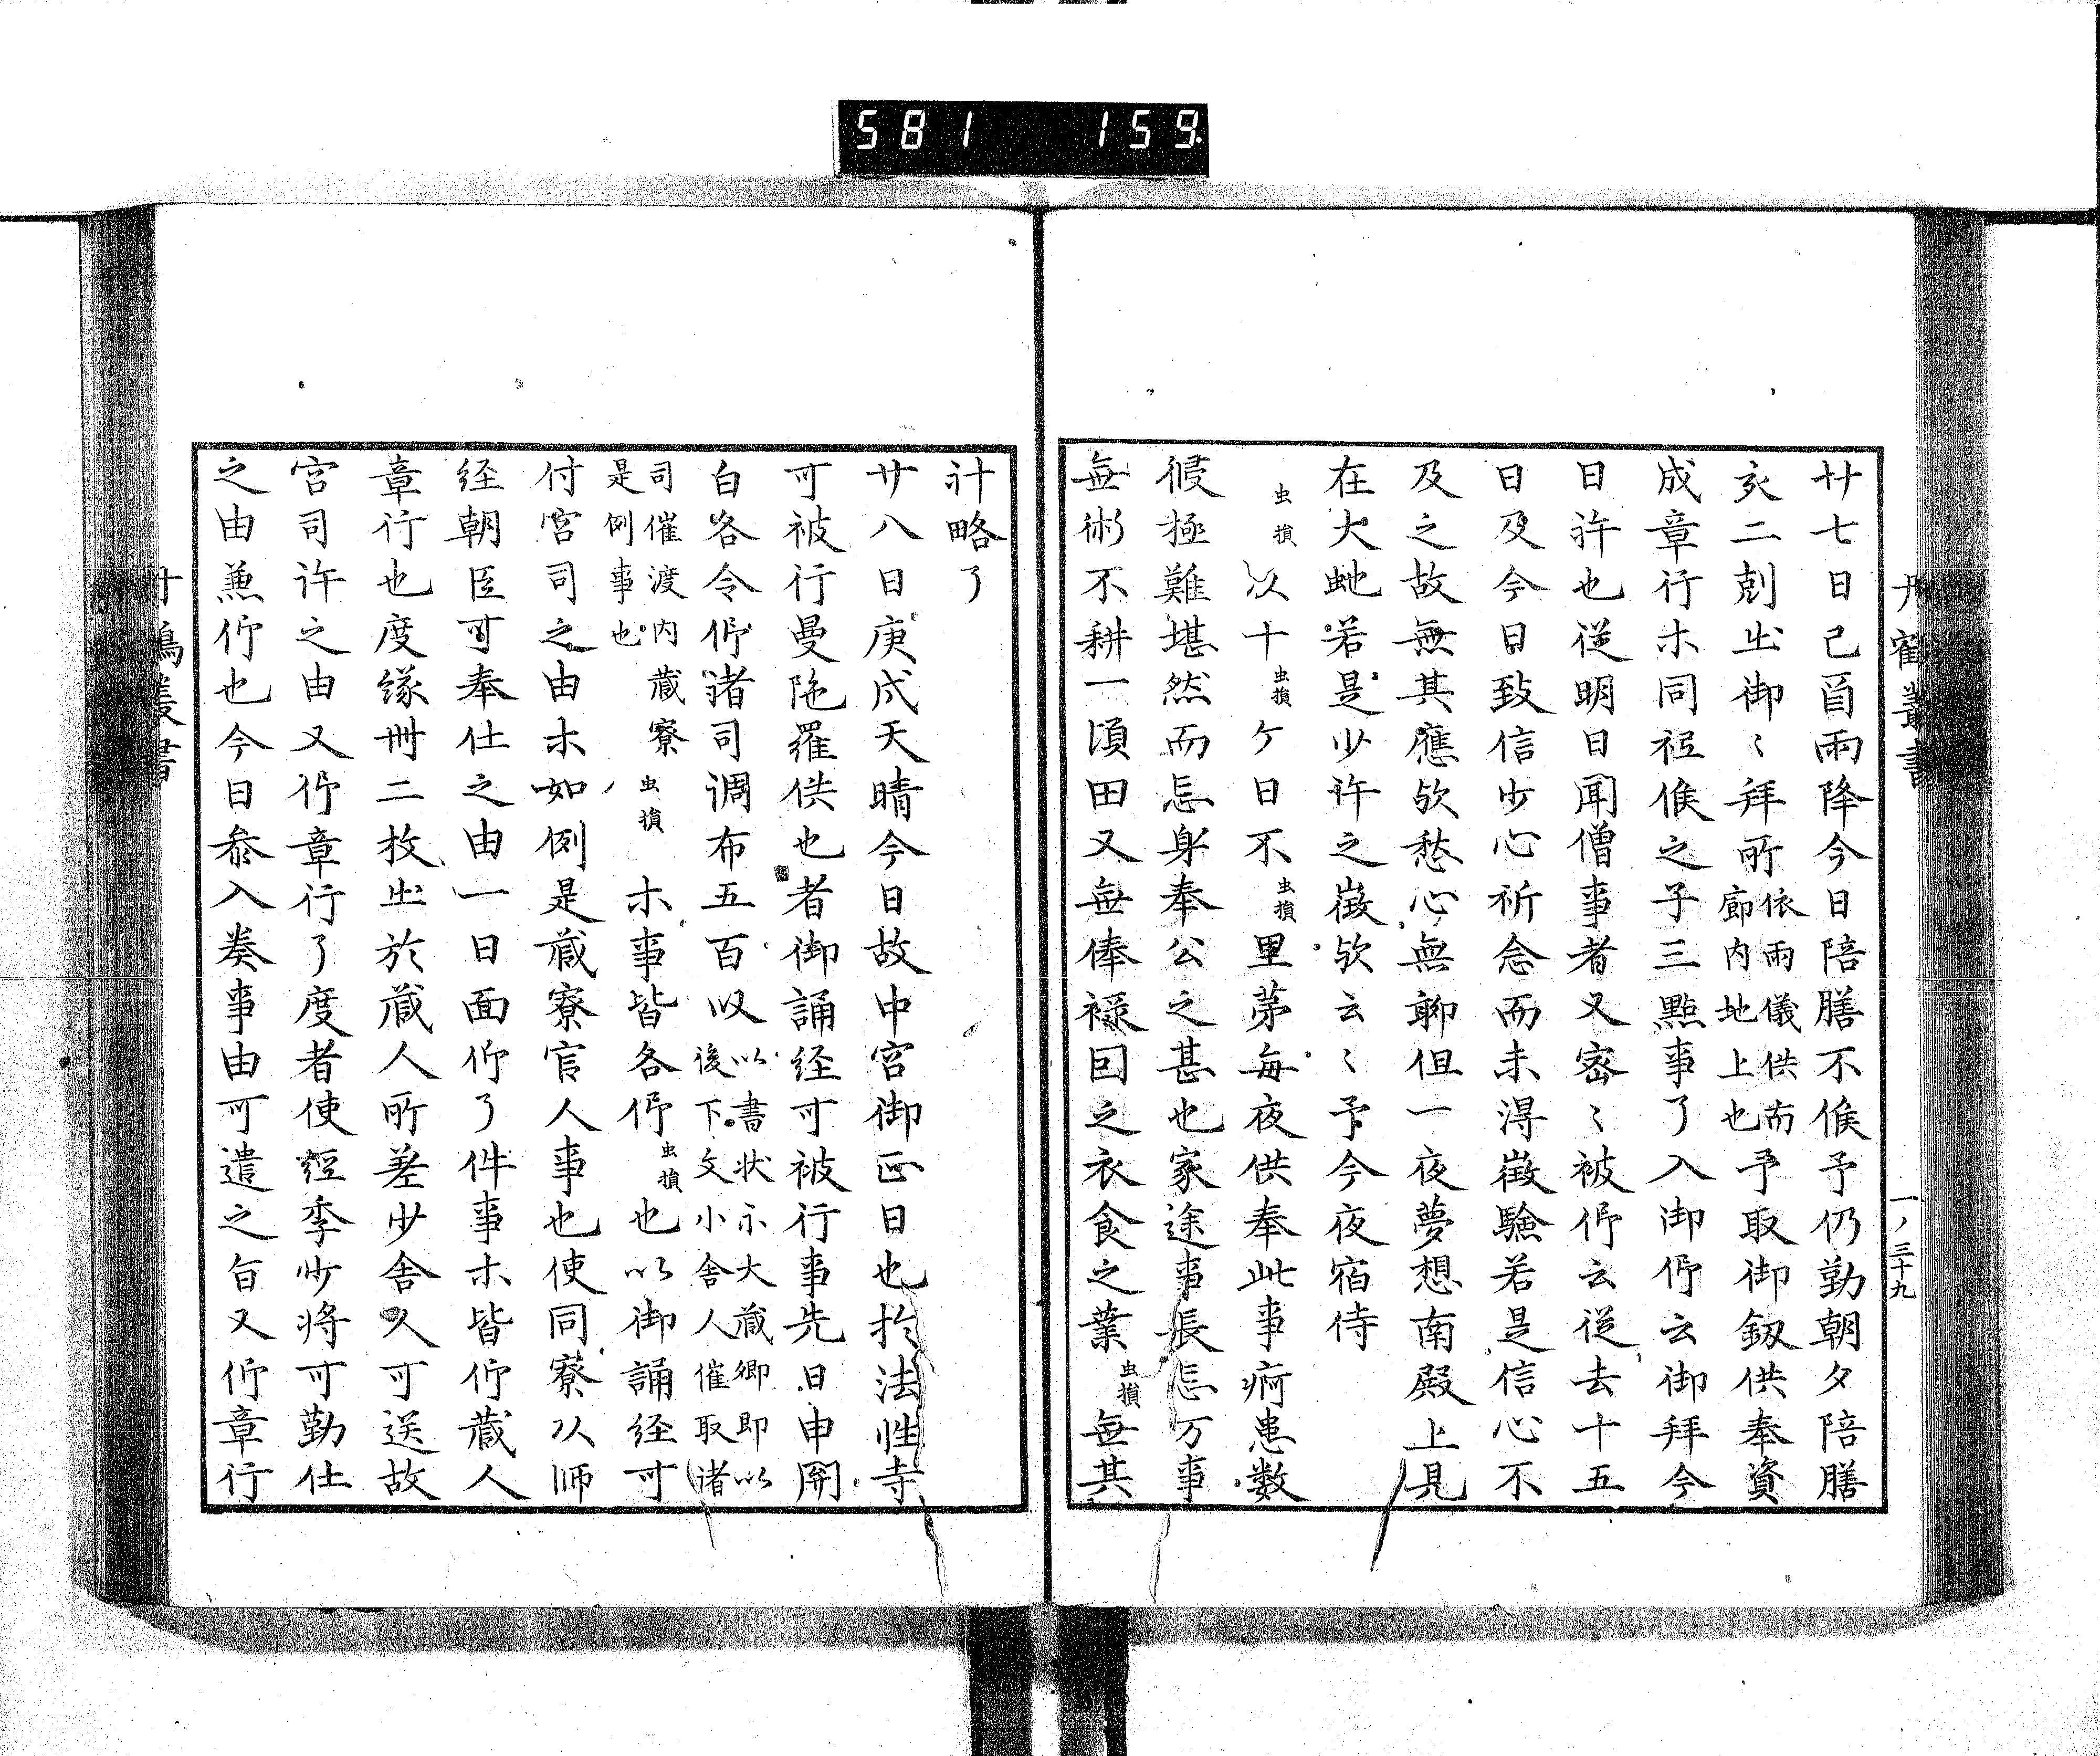 581 159
丹寉叢書
一ノ三十九
廿七日己酉雨降今日陪膳不候予仍勤朝夕陪膳
亥二剋出御〻拜所依雨儀供而廊内地上也予取御釼供奉資
成章行木同祗候之子三點事了入御仰云御拜今
日許也従明日聞僧事者又密〻被仰云従去十五
日及今日致信少心祈念而未淂徴驗若是信心不
及之故無其應欤愁心無聊但一夜夢想南殿上見
在大虵若是少許之徴欤云〻予今夜宿侍
虫損以十虫損ケ日不虫損里茅毎夜供奉此事痾患数
侵極難堪然而忘身奉公之甚也家途事長忘万事
無術不耕一頃田又無俸禄囙之衣食之業虫損無其
計略了
廿八日庚戌天晴今日故中宮御正日也於法性寺
可被行曼陁羅供也者御誦経可被行事先日申関
白畧令仰諸司调布五百以以書状示大蔵卿即以後下文小舎人催取諸
司催渡内蔵寮是例事也虫損木事皆各仰虫損也以御誦経可
付宮司之由木如例是蔵寮官人事也使同寮以師
経朝臣可奉仕之由一日面仰了件事木皆仰蔵人
章行也度縁卌二枚出於蔵人所差少舎人可送故
宮司许之由又仰章行了度者使經季少将可勤仕
之由兼仰也今日叅入奏事由可遣之旨又仰章行